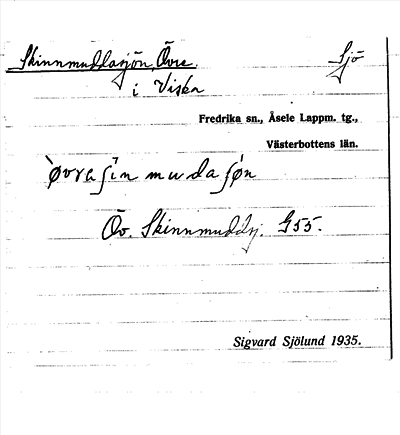 Skinnmuddasjön, Övre. Sjö
i Viska
Fredrika sn., Åsele Lappm. tg.,
Västerbottens län.
`øvra ʃin mudaʃøn
Öv. Skinnmuddsj. G55.
Sigvard Sjölund 1935.